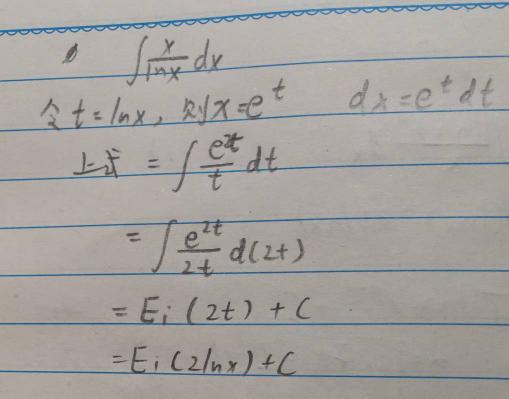 ∫ x/lnx dx
令 t=lnx, 则 x=e^t dx=e^t dt
上式 = ∫ e^2t/t dt
= ∫ e^2t/2t d(2t)
= Ei (2t) + C
= Ei (2lnx) + C